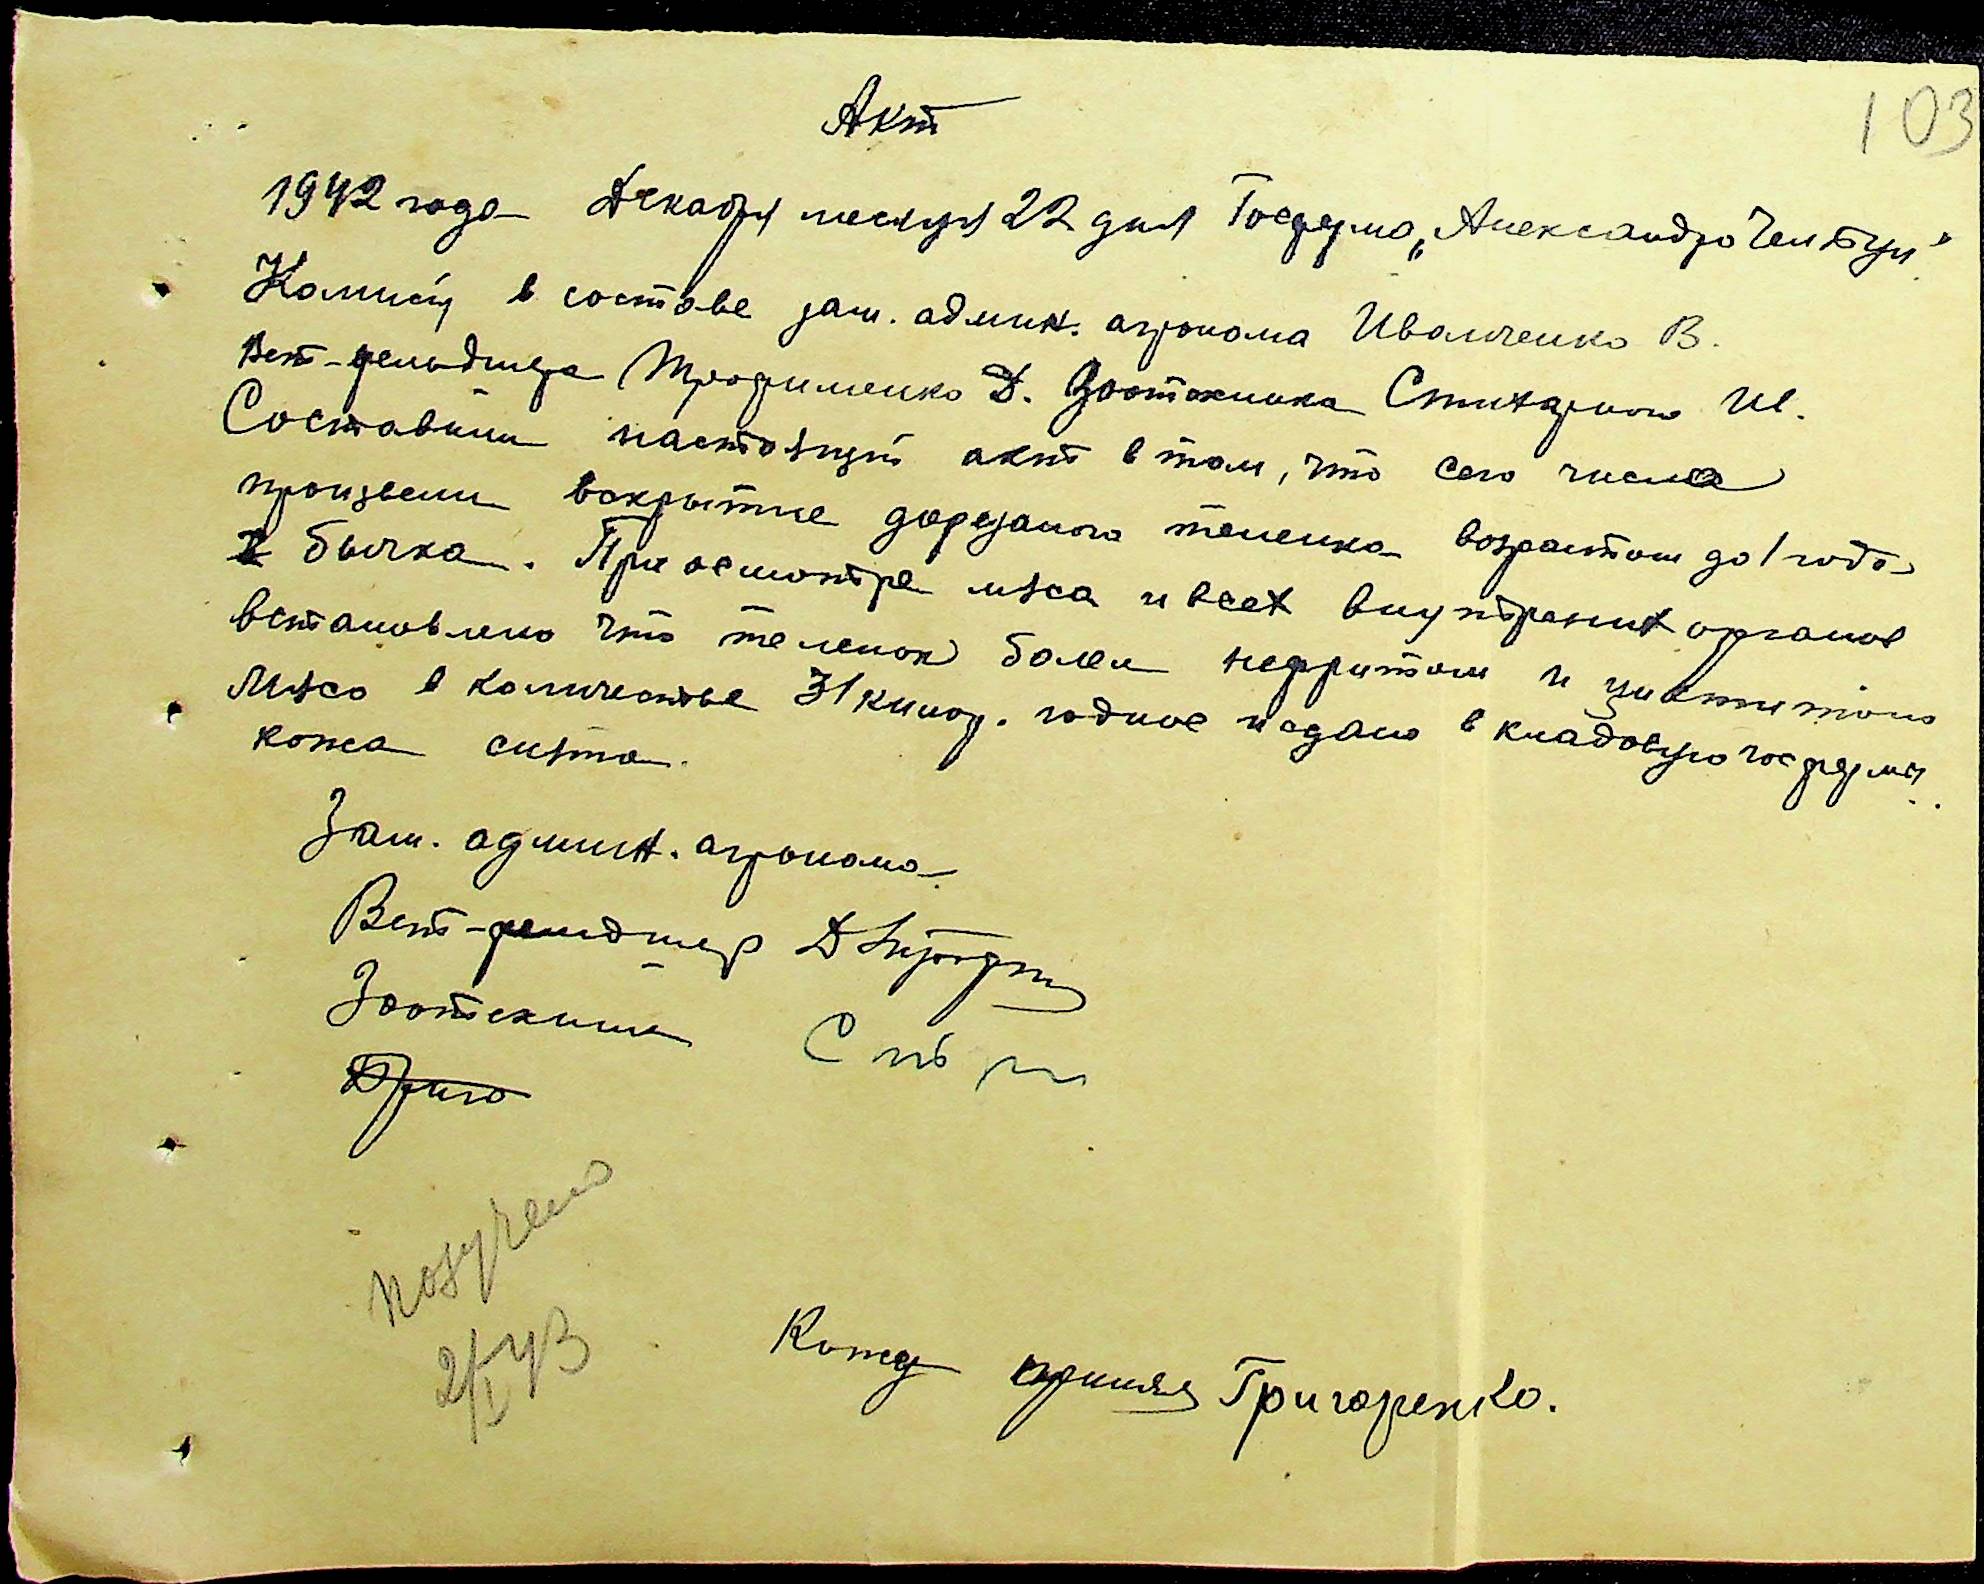 103
Акт
1942 года Декабря месяця 22 дня Госферма „Александро Чентуи"
Комисия в составе зам. админ. агронома Иванченко В.
Вет-фельдшера Трофименко Д. Зоотехника М.
Составили настоящий акт в том, что сего числа
произвели вскрытие дорезаного теленка возрастом до 1 года
бычка. При осмотре мяса и всех внутрених органов
встановлено что теленок болел нефритом и циститом
Мясо в количестве 31 килог. годное и сдано в кладовую госфермы.
кожа снята.
Зам. админ. агронома
Вет-фельдшер Д Трофим
Зоотехник
получено
2/I 43
Кожу принял Григоренко.